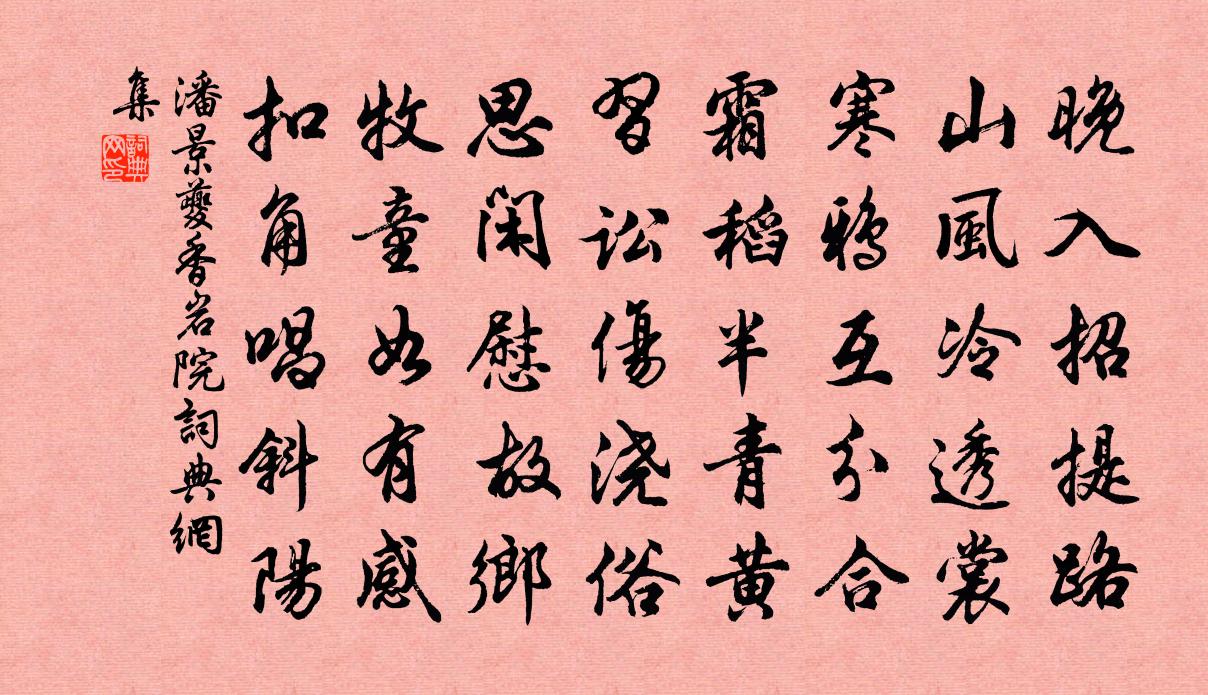 晚入招提路
山風冷透裳
寒鴉互分合
霜稻半青黄
習訟傷浇俗
思闲慰故鄉
牧童如有感
扣角唱斜陽
潘景夔香岩院詞典網
集
詞典
网印